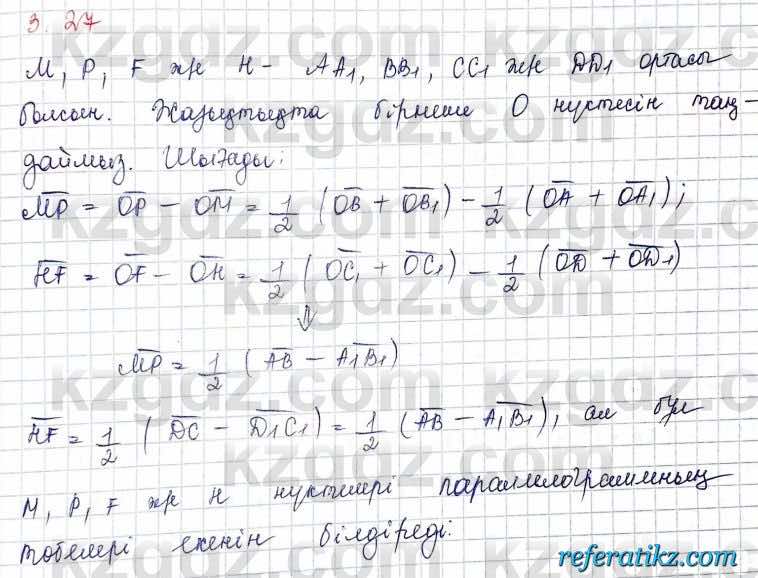 3. 27
M, P, F және H - AA₁, BB₁, CC₁ және DD₁ ортасы
болсын. Жазықтықта бірнеше O нүктесін таң-
даймыз. Шығады:
MP = OP − OM = 1/2 (OB + OB₁) − 1/2 (OA + OA₁);
HF = OF − OH = 1/2 (OC₁ + OC₁) − 1/2 (OD + OD₁)
⇓
MP = 1/2 (AB − A₁B₁)
HF = 1/2 (DC − D₁C₁) = 1/2 (AB − A₁B₁), ал бұл
M, P, F және H нүктелері параллелограммның
төбелері екенін білдіреді.
kzgdz.com
referatikz.com